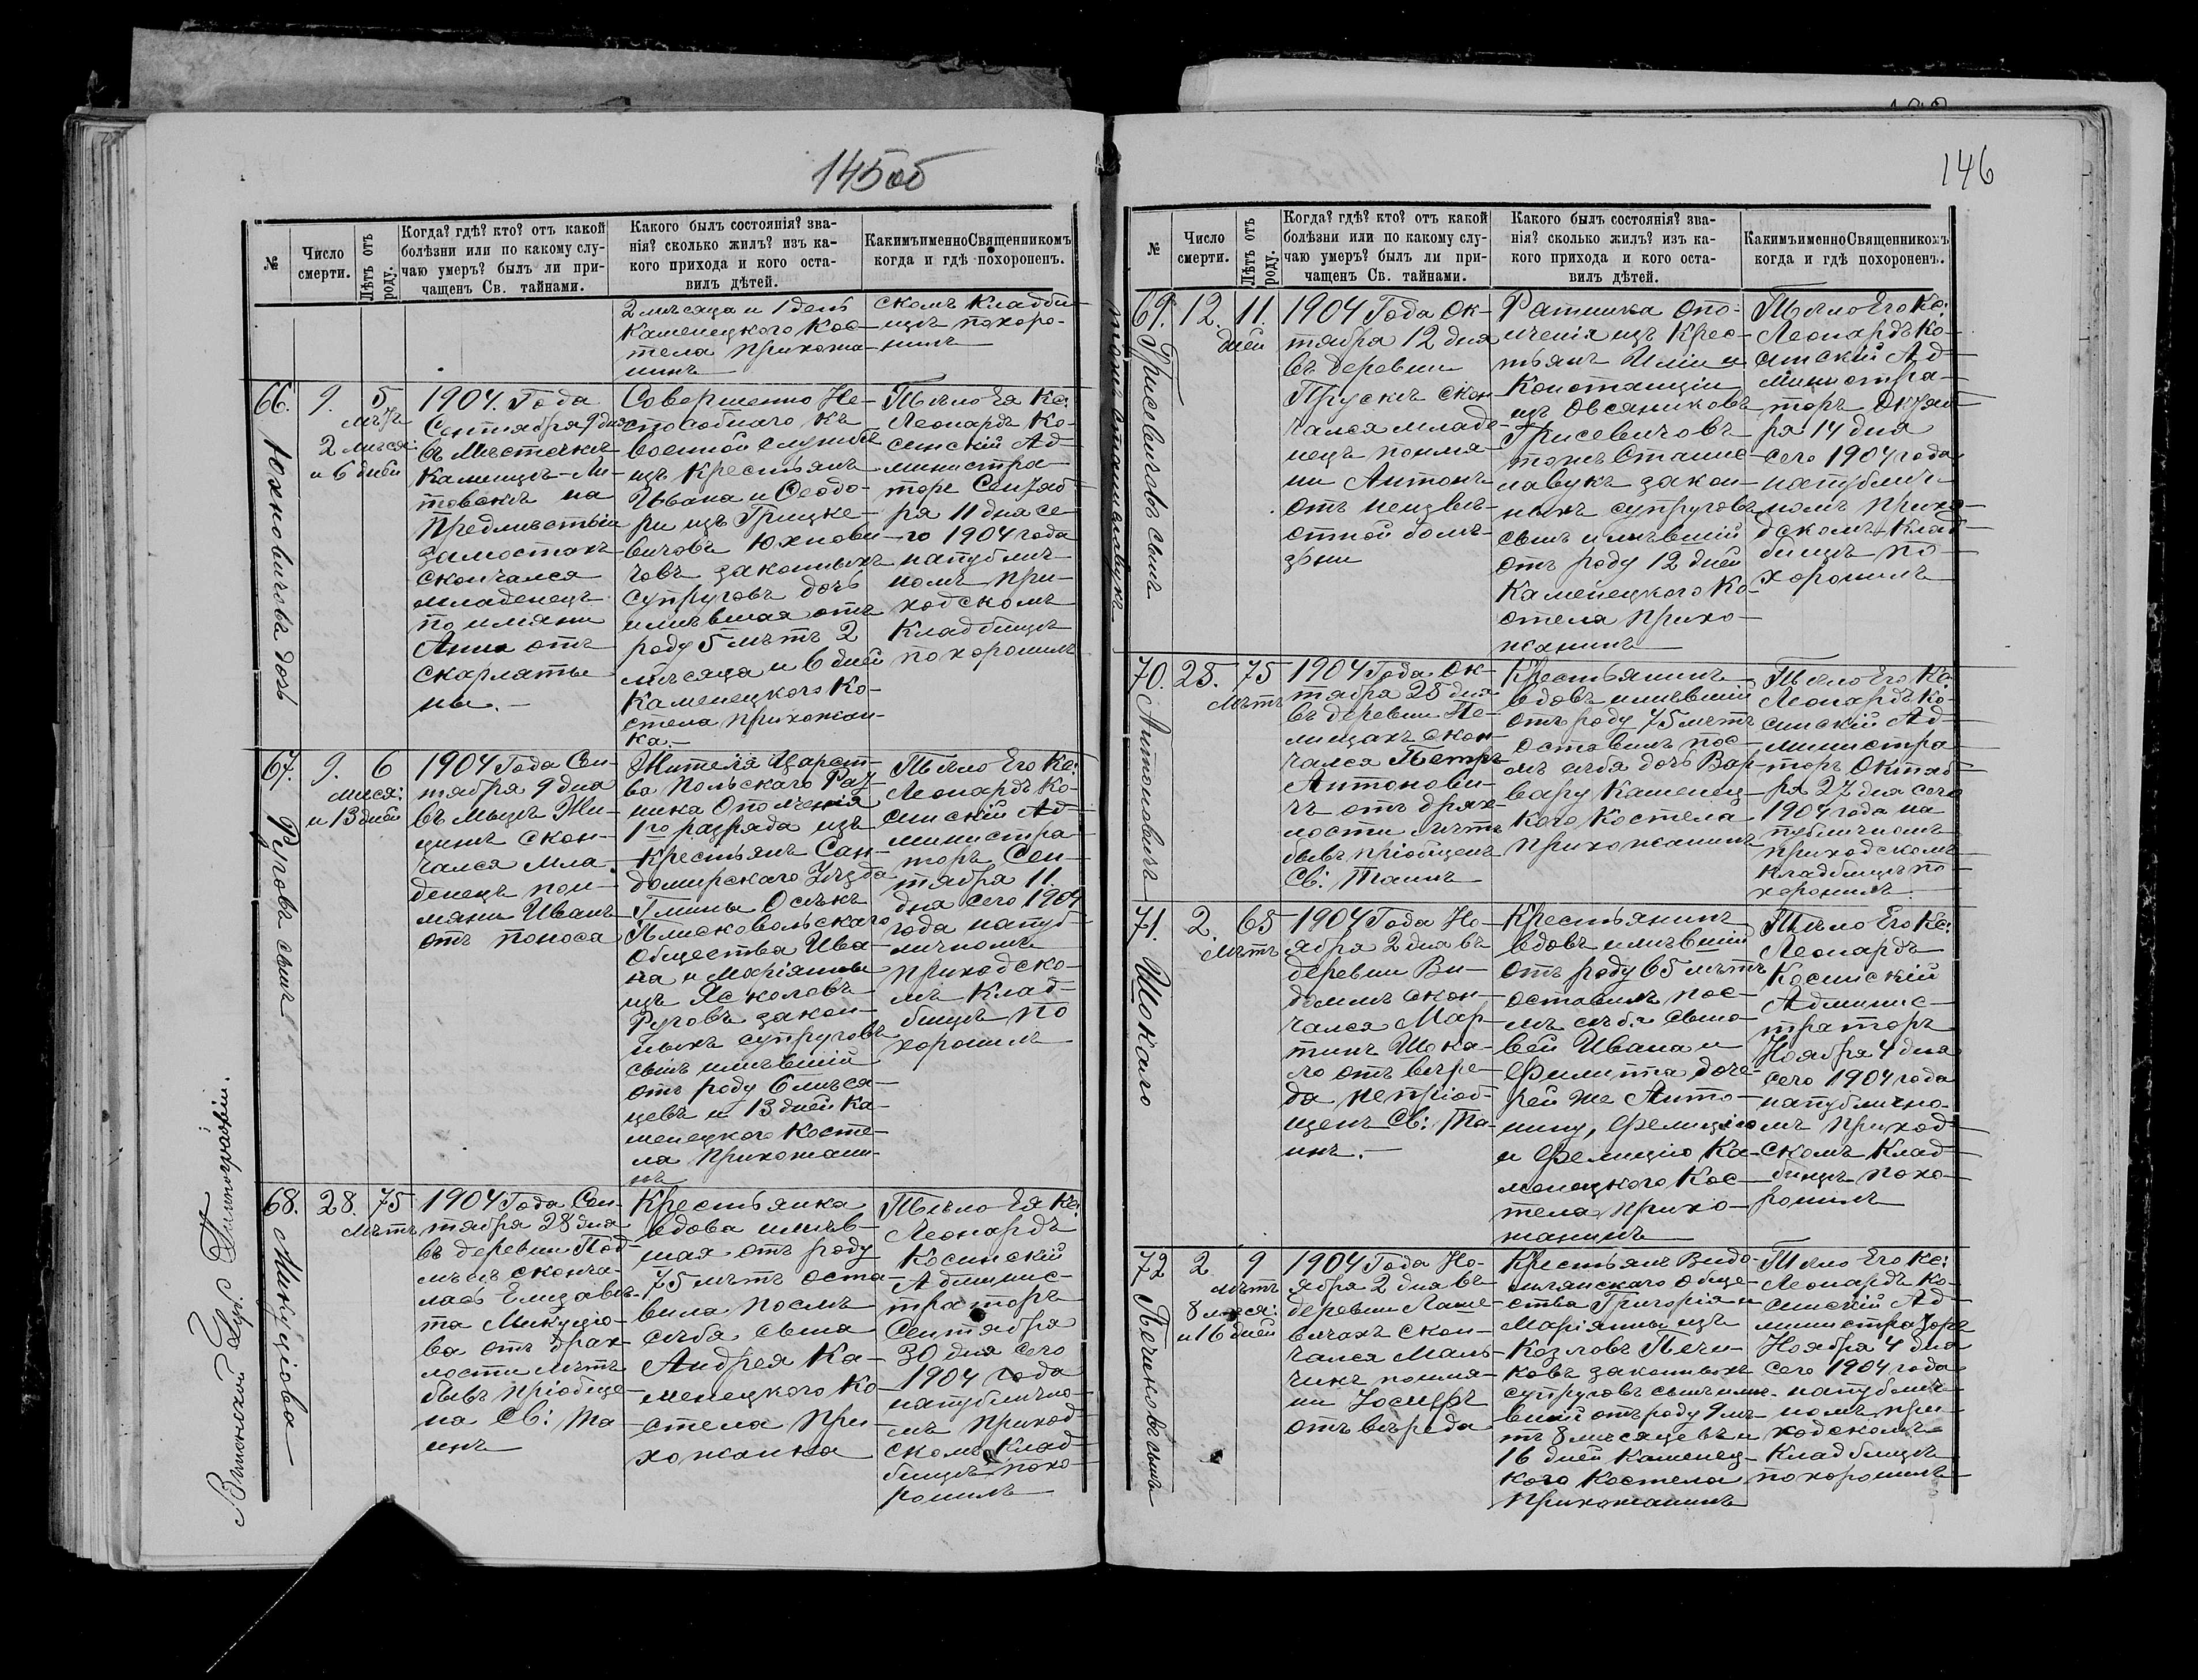 145об
№
Число
смерти.
Лѣтъ отъ
роду.
Когда? гдѣ? кто? отъ какой
болѣзни или по какому слу-
чаю умеръ? былъ ли при-
чащенъ Св. тайнами.
Какого былъ состоянія? зва-
нія? сколько жилъ? изъ ка-
кого прихода и кого оста-
вилъ дѣтей.
Какимъ именно Священникомъ
когда и гдѣ похороненъ.
2 мѣсяца и 1 день
Каменецкого Кос-
тела прихожа-
нинъ
скомъ Кладби-
щѣ похоро-
нилъ
66.
Юхновичовъ дочь
9.
5
лѣтъ
2 мѣсяц:
и 6 дней
1904. Года
Сентября 9 дня
въ Мѣстечкѣ
Каменцѣ-Ли-
товскѣ на
предмѣстьи
Замостахъ
скончался
младенецъ
по имяни
Анна отъ
скарлати
ны.
Совершенно Не-
способного къ
военной службѣ
изъ Крестьянъ
Ивана и Феодо-
ри изъ Грицке-
вичовъ Юхнови-
човъ законныхъ
супруговъ дочь
имѣвшая отъ
роду 5 лѣтъ 2
мѣсяца и 6 дней
Каменецкого Ко-
стела прихожан-
ка.
Тѣло Ея Кс:
Леонардъ Ко-
синскій Ад-
министра-
торъ Сентяб-
ря 11 дня се-
го 1904 года
на публич-
номъ при-
ходскомъ
Кладбищѣ
похоронилъ
67.
Руговъ сынъ
9.
6
мѣся:
и 13 дней
1904 Года Сен-
тября 9 дня
скон-
чался мла-
денецъ поi-
мяни Иванъ
отъ поноса
Жителя Царст-
ва Польского Рат
ника Ополченія
1го разряда изъ
Крестьянъ Сан-
домирскаго Уѣзда
Гмины Осѣкъ
общества Ива-
на и Маріянны
изъ Ясколовъ
Руговъ закон-
ныхъ супруговъ
сынъ имѣвшій
отъ роду 6 мѣся-
цевъ и 13 дней Ка-
менецкого Косте-
ла прихожани-
нъ
Тѣло Его Кс:
Леонардъ Ко-
синскій Ад-
министра
торъ Сен-
тября 11
дня сего 1904
года на пуб-
личномъ
приходско-
мъ Клад-
бищѣ по
хоронилъ
68.
Микуціова
28.
75
лѣтъ
1904 Года Сен-
тября 28 дня
въ деревни Под-
скон­ча-
лась Елизаве-
та Микуціо-
ва отъ дрях-
лости лѣтъ
бывъ пріобще-
на Св: Та
инъ
Крестьянка
вдова имѣв-
шая отъ роду
75 лѣтъ оста-
вила послѣ
себя сына
Андрея Ка-
менецкого Ко-
стела при-
хожанка
Тѣло Ея Кс:
Леонардъ
Косинскій
Админис-
траторъ
Сентября
30 дня сего
1904 года
на публично-
мъ приход-
скомъ Клад-
бищѣ похо-
ронилъ
Виленской Губ. Типографіи.
146
№
Число
смерти.
Лѣтъ отъ
роду.
Когда? гдѣ? кто? отъ какой
болѣзни или по какому слу-
чаю умеръ? былъ ли при-
чащенъ Св. тайнами.
Какого былъ состоянія? зва-
нія? сколько жилъ? изъ ка-
кого прихода и кого оста-
вилъ дѣтей.
Какимъ именно Священникомъ
когда и гдѣ похороненъ.
69.
Грисевичовъ сынъ
тожъ Станиславукъ
12.
11.
дней
1904 Года Ок-
тября 12 дня
въ деревни
Прускѣ скон-
чался младе-
нецъ поимя-
ни Антонъ
отъ неизвѣ-
стной болѣ-
зни
Ратника Опо-
лченія изъ Крес-
тьянъ Иліи и
Констанціи
изъ Овсяниковъ
Грисевичовъ
тожъ Станис-
лавукъ закон-
ныхъ супруговъ
сынъ имѣвшій
отъ роду 12 дней
Каменецкого Ко-
стела прихо-
жанинъ
Тѣло Его Кс:
Леонардъ Ко-
синскій Ад-
министра-
торъ Октяб-
ря 14 дня
сего 1904 года
на публич-
номъ прихо-
дскомъ Клад-
бищѣ по-
хоронилъ
70.
Антоновичъ
25.
75
лѣтъ
1904 Года Ок-
тября 25 дня
въ деревни Пе-
лищахъ скон-
чался Петръ
Антонови-
чъ отъ дрях-
лости лѣтъ
бывъ пріобщенъ
Св: Таинъ
Крестьянинъ
вдовъ имѣвшій
отъ роду 75 лѣтъ
оставилъ пос-
лѣ себя дочь Вар-
вару Каменец-
кого Костела
прихожанинъ
Тѣло Его Кс:
Леонардъ Ко-
синскій Ад-
министра-
торъ Октяб-
ря 27 дня сего
1904 года на
публичномъ
приходскомъ
Кладбищѣ по-
хоронилъ
71.
Шокало
2.
65
лѣтъ
1904 Года Но-
ября 2 дня въ
деревни Ви-
домлѣ скон-
чался Мар-
тинъ Шока-
ло отъ вере-
да непріоб-
щенъ Св: Та-
инъ.
Крестьянинъ
вдовъ имѣвшій
отъ роду 65 лѣтъ
оставилъ пос-
лѣ себя сыно-
вей Ивана и
Филиппа доче-
рей же Анто-
нину, Фелицію
и Фелицію Ка-
менецкого Кос-
тела прихо-
жанинъ
Тѣло Его Кс:
Леонардъ
Косинскій
Админис-
траторъ
Ноября 4 дня
сего 1904 года
на публично-
мъ приход-
скомъ Клад-
бищѣ похо-
ронилъ
72
Печиковъ сынъ
2
9
лѣтъ
8 мѣся:
и 16 дней
1904 Года Но-
ября 2 дня въ
деревни Лаше-
вичахъ скон-
чался Маль-
чикъ поимя-
ни Іосифъ
отъ вереда
Крестьянъ Видо-
млянскаго обще-
ства Григорія и
Маріянны изъ
Козловъ Печи-
ковъ законныхъ
супруговъ сынъ имѣ-
вшій отъ роду 9 лѣ-
тъ 8 мѣсяцевъ и
16 дней Каменец-
кого Костела
прихожанинъ
Тѣло Его Кс:
Леонардъ Ко-
синскій Ад-
министраторъ
Ноября 4 дня
сего 1904 года
на публич-
номъ при-
ходскомъ
Кладбищѣ
похоронилъ